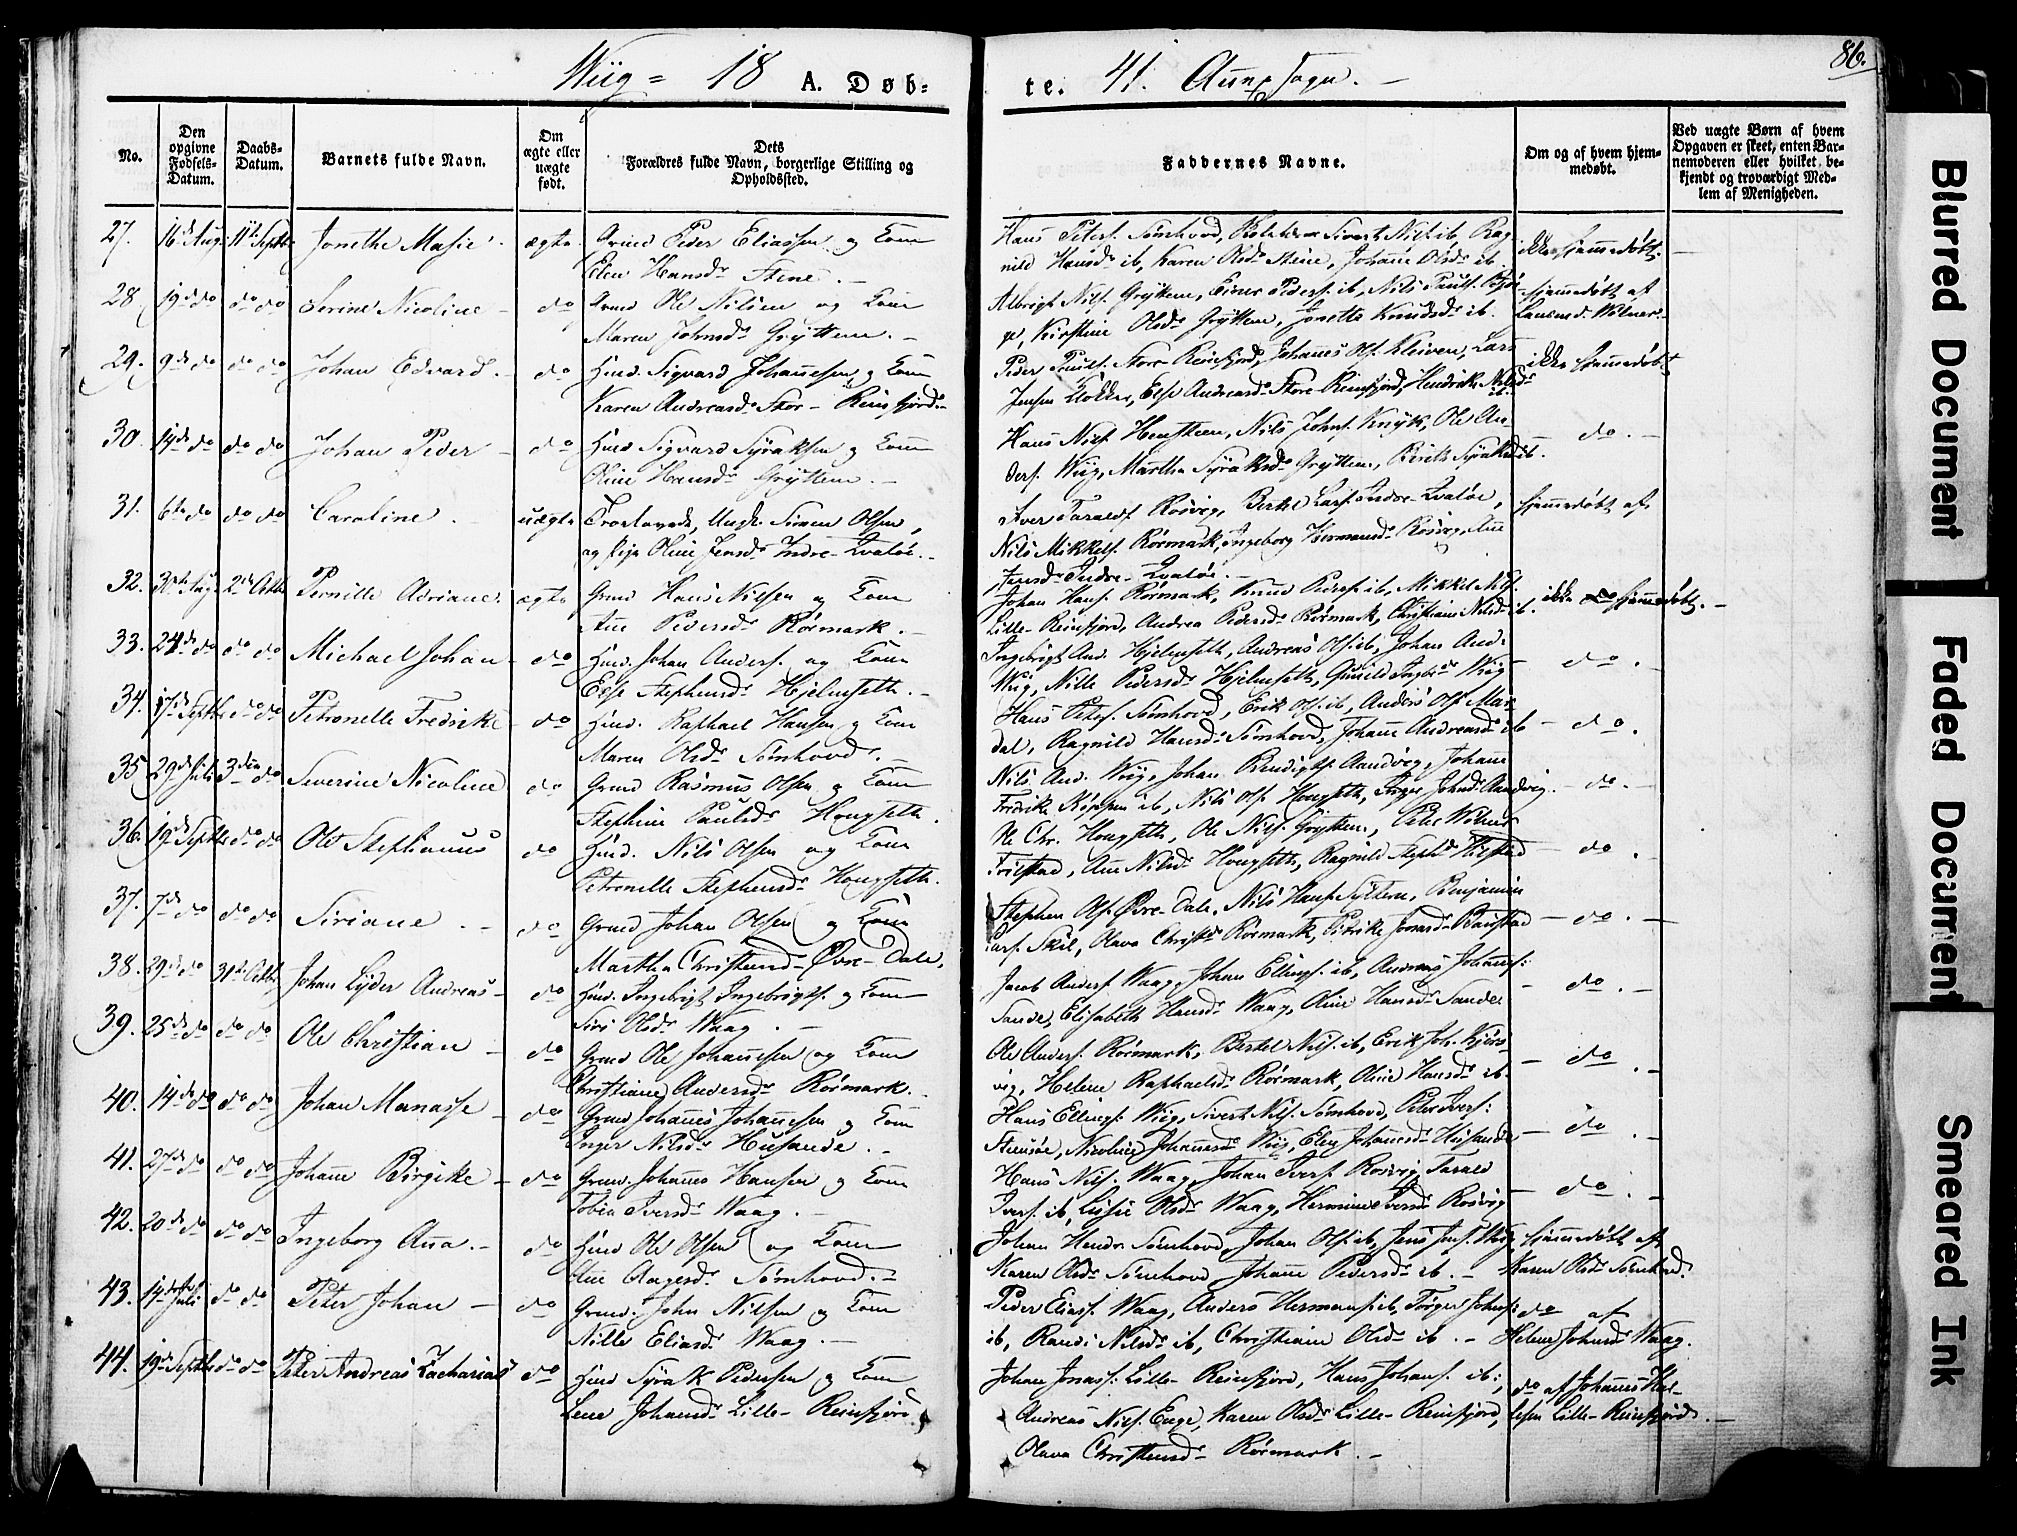 Wiig = 18 A. Døb=
te. 41. Aune Sogn. -
86.
No.
Den opgivne Fødsels-Datum.
Daabs-Datum.
Barnets fulde Navn.
Om ægte eller uægte født.
Dets Forældres fulde Navn, borgerlige Stilling og Opholdssted.
Faddernes Navne.
Om og af hvem hjemmedøbt.
Ved uægte Børn af hvem Opgaven er skeet, enten Barnemoderen eller hvilket bekjendt og troværdigt Medlem af Menigheden.
27. 16de Aug. 11te Septbr Jonethe Masie. ægte Peder Eliassen og Kone
Elen Hansdr Stene. -
Hans Peters. Sømhovd, Sivert Nils. ib, Rag
nild Hansdr ib, Karen Olsdr Stene, Johanne Olsdr ib.
ikke hjemmedøbt. -
28. 19de do do do Serine Nicoline - do Ole Nilsen og Kone
Maren Johnsdr Gryttem. -
Albrigt Nils. Gryttem, Einer Peders. ib, Nils Pauls.
Kirstine Olsdr Gryttem, Jonetta Knudsdr ib.
hjemmedøbt af
29. 9de do do do Johan Edvard. - do Huusmd. Sigvard Johannesen og Kone
Karen Andreasdr Stor-Reinsfjord. -
Peder Pauls. Store-Reinsfjord, Johannes Ols. Kleiven, Lars
Jensen Klokker, Else Andreasdr Store-Reinsfjord, Hendrikke Nilsdr ib.
ikke hjemmedøbt
30. 14de do do do Johan Peder - do Huusmd Sigvard Syraksen og Kone
Oline Hansdr Gryttem. -
Hans Nils. Hensteen, Nils Johns. Knyk, Ole An-
ders. Wiig, Martha Syraksdr Gryttem, Berith Syraksdr ib.
do. -
31. 6te do do do Caroline. uægte Trolovede, Ungk. Simen Olsen,
og Pige Oline Jensdr Indre-Qvaløe. -
Iver Taralds. Rosvig, Bertel Lars. Indre-Qvaløe,
Nils Mikkels. Rørmark, Ingeborg Hermansdr Rosvig, Ane
Jensdr Indre-Qvaløe. -
hjemmedøbt af
32. 30te Aug. 2den Octbr Pernille Adriane. ægte Hans Nielsen og Kone
Ane Pedersdr Rørmark. -
Johan Hans. Rørmark, Knud Peders. ib, Mikkel Nils.
Lille-Reinsfjord, Andrea Pedersdr Rørmark, Christiane Nilsdr ib.
ikke do hjemmedøbt. -
33. 24de do do do Michael Johan - do Huusmd. Johan Anders. og Kone
Else Stephensdr Hjelmseth. -
Ingebrigt And. Hjelmseth, Andreas Ols. ib, Johan And.
Wiig, Nille Pedersdr Hjelmseth, Gunild Ingbr.dr Wiig -
do. -
34. 17de Septbr do do Petronelle Fredrike - do Huusmd. Raphael Hansen og Kone
Maren Olsdr Sømhovd.
Hans Peters. Sømhovd, Erik Ols. ib, Anders Ols. Mar-
dal, Ragnild Hansdr Sømhovd, Johanne Andreasdr ib
- do.
35. 29de Juli 3die do Severine Nicoline do Rasmus Olsen og Kone
Stephine Paulsdr Hougseth. -
Nils And. Wiig, Johan Bendigts. Aandvig, Johanne
Fredrike Køppen ib, Nils Ols. Hougseth, Inger Johnsdr Aandvig.
- do. -
36. 19de Septbr do do Ole Stephanus do Huusmd. Nils Olsen og Kone
Petronelle Stephensdr Hougseth.
Ole Chr. Hougseth, Ole Nils. Gryttem, Peter Wolner
Ane Nilsdr Hougseth, Ragnild Stephdr
- do.
37. 7de do do do Siriane. - do Johan Olsen og Kone
Martha Christensdr Øvre-Dale.
Stephen Ols. Øvre-Dale, Nils Hans. Syltern, Benjamin
Lars. Skil, Olava Christdr Rørmark, Petrike Jonasdr
- do. -
38. 29de do 31te Octbr Johan Lyder Andreas - do Huusmd. Ingebrigt Ingebrigts. og Kone
Siri Olsdr Waag. -
Jacob Anders. Waag, Johan Ellings. ib, Andreas Johans.
Sande, Elisabeth Hansdr Waag, Oline Hansdr Sande.
- do. -
39. 25de do do do Ole Christian - do Ole Johannesen og Kone
Christiane Andersdr Rørmark. -
Ole Anders. Rørmark, Bertel Nils. ib, Erik Joh. Kjørs-
vig, Helene Raphaelsdr Rørmark, Oline Hansdr ib -
- do -
40. 14de do do do Johan Manasse - do Johannes Johannesen og Kone
Inger Nilsdr Husande. -
Hans Ellings. Wiig, Sivert Nils. Sømhovd, Peter Ivers.
Steensøe, Nicoline Johannesdr Wiig, Elen Johannesdr Husande
- do -
41. 27de do do do Johanne Birgitte - do Johannes Hansen og Kone
Tobia Iversdr Waag. -
Hans Nils. Waag, Johan Ivers. Rosvig, Tarald
Ivers. ib, Lissie Olsdr Waag, Hermine Iversdr Rosvig
- do. -
42. 20de do do do Ingeborg Ana. - do Huusmd Ole Olsen og Kone
Ane Aagesdr Sømhovd. -
Johan Hendr. Sømhovd, Johan Ols. ib, Jens Jens. Wiig,
Karen Olsdr Sømhovd, Johanne Pedersdr ib. -
hjemmedøbt af
Karen Olsdr Sømhovd.
43. 14de Juli do do Peter Johan - do John Nilsen og Kone
Nille Eliasdr Waag. -
Peder Elias. Waag, Anders Hermans. ib, Torger Johns.
ib, Randi Nilsdr ib, Christiane Olsdr ib. -
do af
Helene Johnsdr Waag.
44. 19de Septbr do do Peter Andreas Zacharias do Huusmd Syrak Pedersen og Kone
Lene Johansdr Lille-Reinsfjord
Johan Jonas. Lille-Reinsfjord, Hans Johans. ib,
Andreas Nils. Enge, Karen Olsdr Lille-Reinsfjord,
Olava Christensdr Rørmark. -
do af Johannes
Lille-Reinsfjord. -
Blurred Document
Faded Document
Smeared Ink